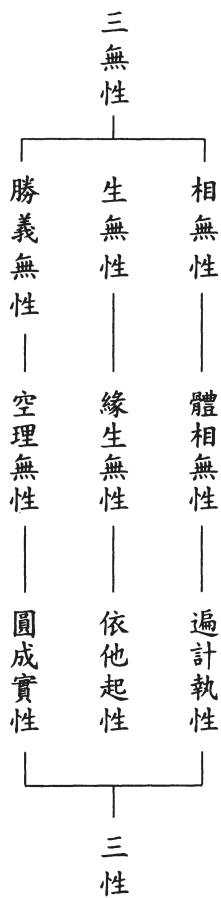 三無性
相無性
體相無性
遍計執性
生無性
緣生無性
依他起性
勝義無性
空理無性
圓成實性
三性